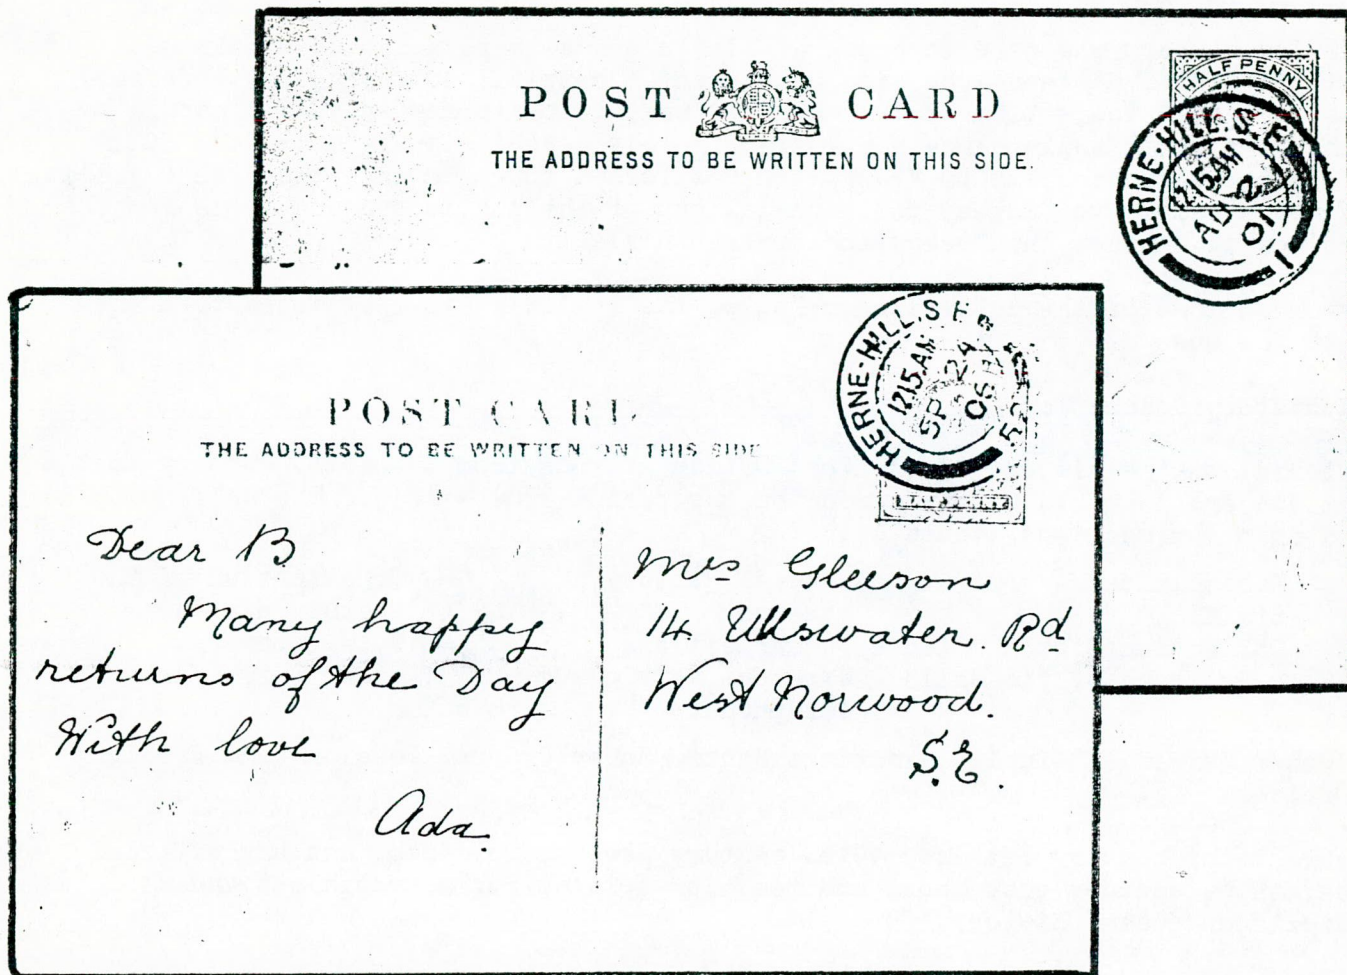 POST CARD
THE ADDRESS TO BE WRITTEN ON THIS SIDE.
HALF PENNY
HERNE-HILL.S.E
12 15 AM
AU 2
01
1
POST CARD
THE ADDRESS TO BE WRITTEN ON THIS SIDE
HERNE-HILL.S.E
12 15 AM
SP 24
06
52
Dear B
Many happy
returns of the Day
With love
Ada.
Mrs Gleeson
14 Ullswater Rd
West Norwood.
S.E.